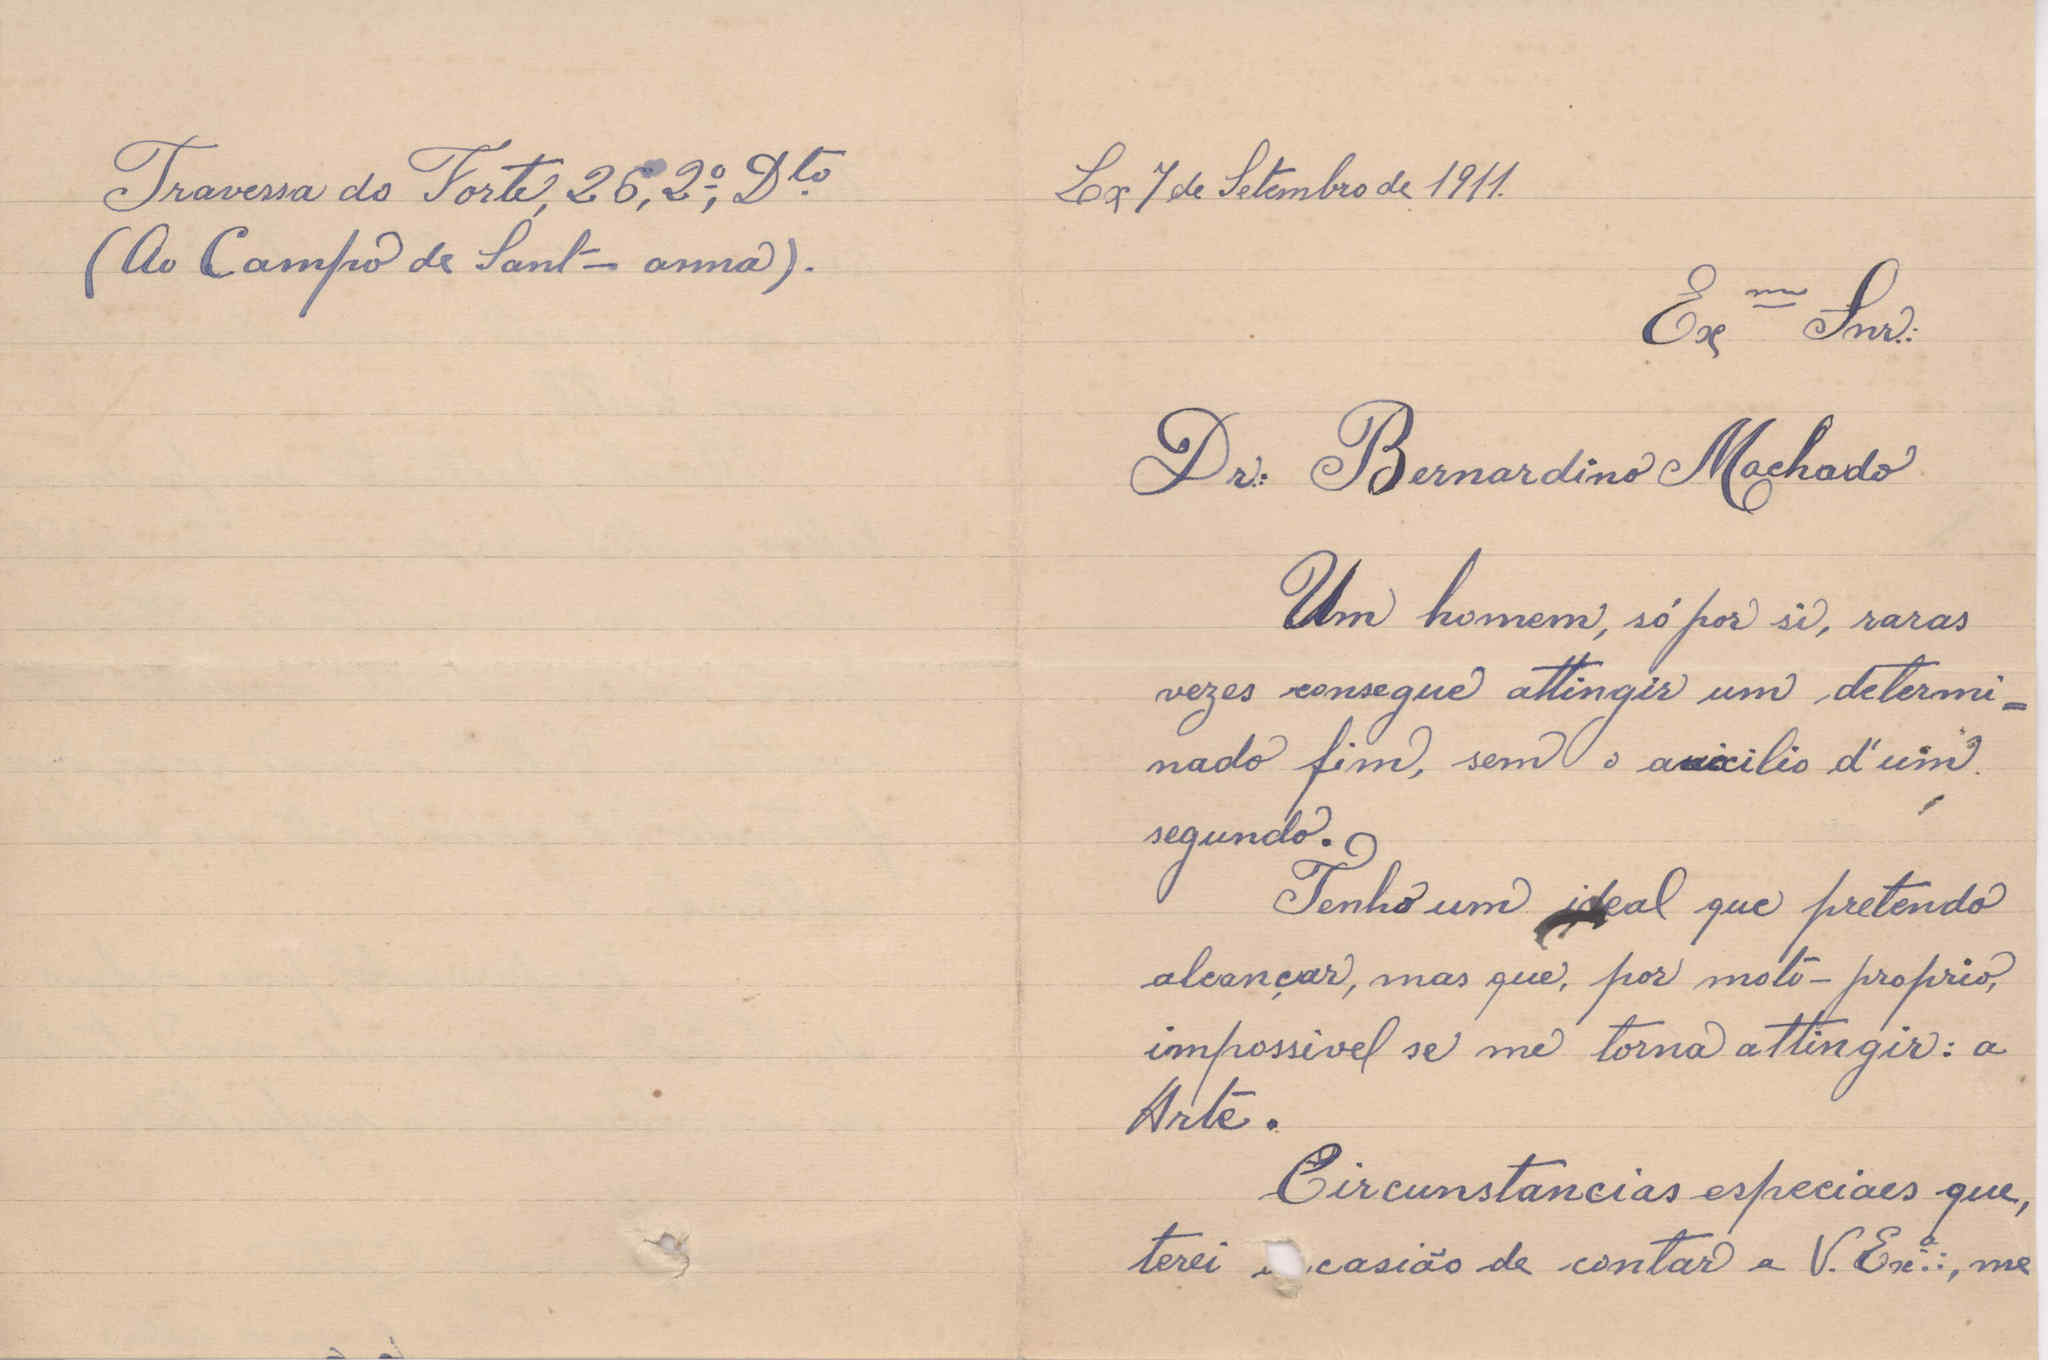 Travessa do Forte, 26, 2º, Dto
(Ao Campo de Sant-anna).
Lx 7 de Setembro de 1911.
Exmo Snr.:
Dr.: Bernardino Machado
Um homem, só por si, raras
vezes consegue attingir um determi=
nado fim, sem o auxilio d'um
segundo.
Tenho um ideal que pretendo
alcançar, mas que, por moto-proprio,
impossivel se me torna attingir: a
Arte.
Circunstancias especiaes que,
terei occasião de contar a V. Exª.:, me